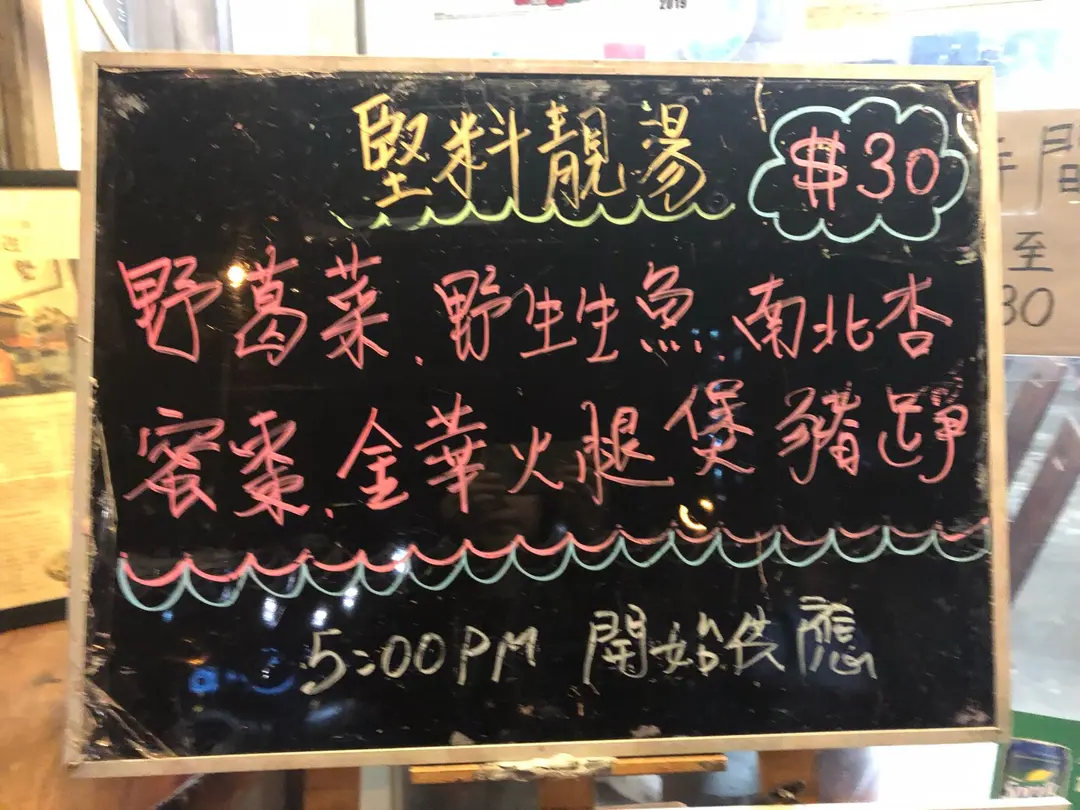 2019
堅料靚湯
$30
野葛菜、野生生魚、南北杏
蜜棗、金華火腿煲豬踭
5:00PM 開始供應
間
至
30